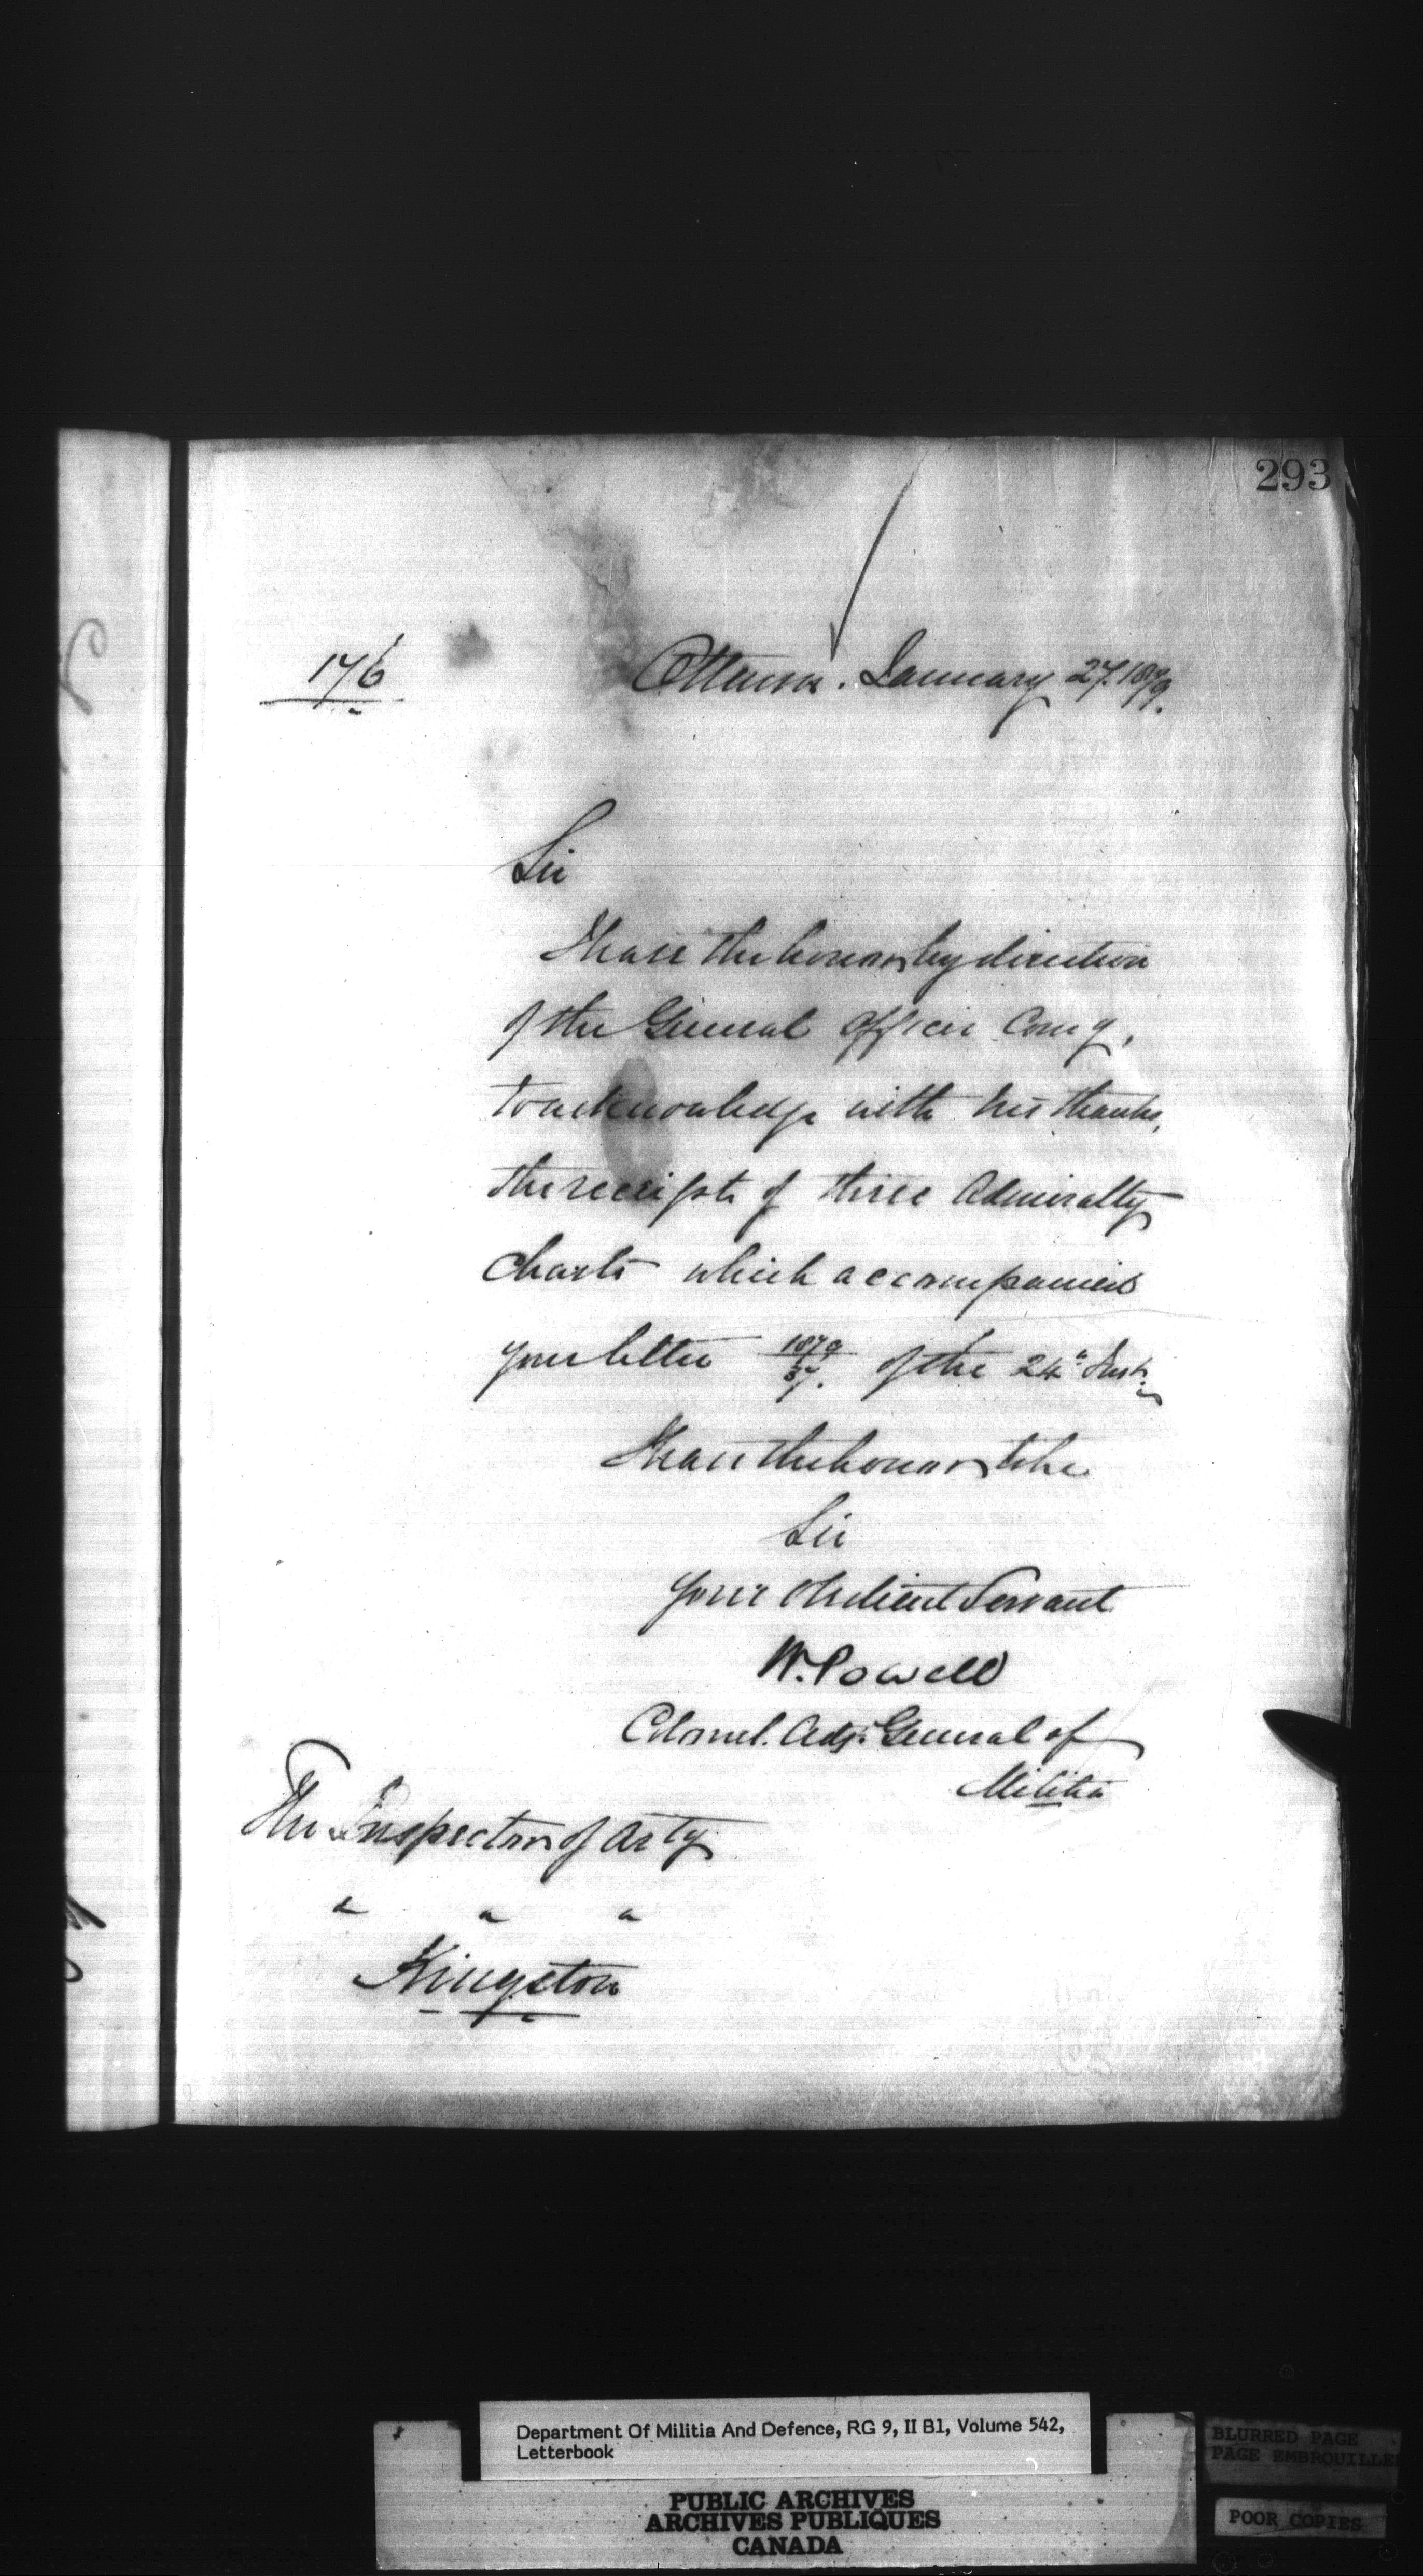 293
176
Ottawa. January 27. 1879.
Sir
I have the honor by direction
of the General Officer Comg,
to acknowledge with his thanks,
the receipt of three Admiralty
Charts which accompanied
your letter 1879/37. of the 24th Inst.
I have the honor to be
Sir
Your Obedient Servant
W. Powell
Colonel. Adjt General of
Militia
The Inspector of Arty
" " "
Kingston
Department Of Militia And Defence, RG 9, II B1, Volume 542,
Letterbook
PUBLIC ARCHIVES
ARCHIVES PUBLIQUES
CANADA
BLURRED PAGE
PAGE EMBROUILLEE
POOR COPIES